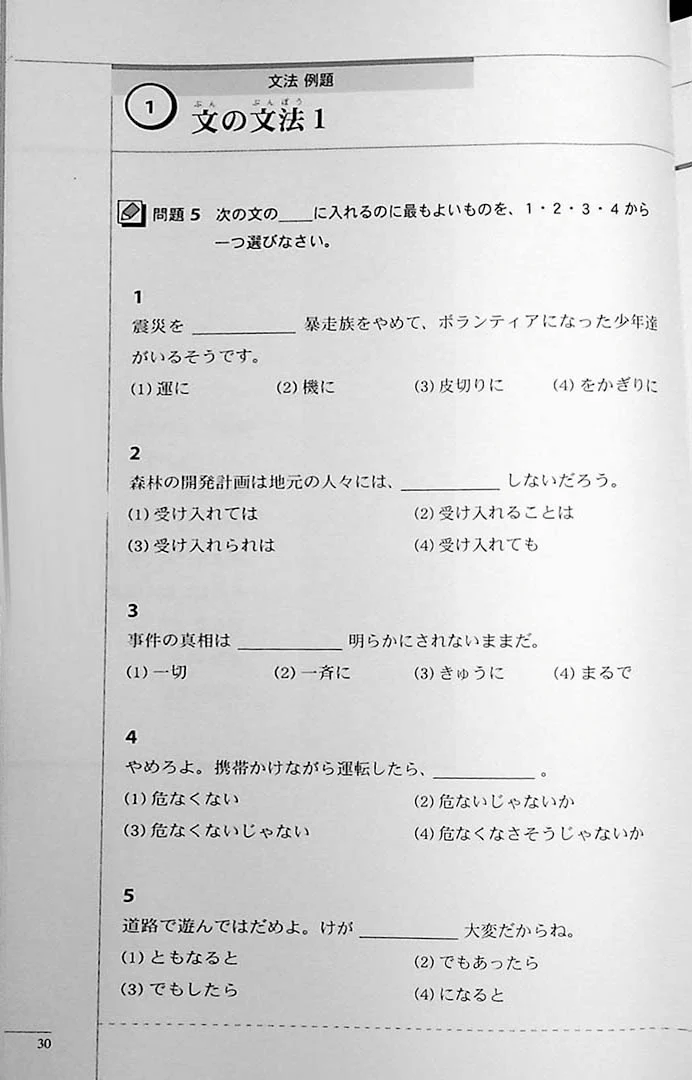 文法 例題
1
ぶん ぶんぽう
文の文法1
問題5 次の文の____に入れるのに最もよいものを、1・2・3・4から
一つ選びなさい。
1
震災を __________ 暴走族をやめて、ボランティアになった少年達
がいるそうです。
(1)運に (2)機に (3)皮切りに (4)をかぎりに
2
森林の開発計画は地元の人々には、__________ しないだろう。
(1)受け入れては (2)受け入れることは
(3)受け入れられは (4)受け入れても
3
事件の真相は __________ 明らかにされないままだ。
(1)一切 (2)一斉に (3)きゅうに (4)まるで
4
やめろよ。携帯かけながら運転したら、__________ 。
(1)危なくない (2)危ないじゃないか
(3)危なくないじゃない (4)危なくなさそうじゃないか
5
道路で遊んではだめよ。けが __________ 大変だからね。
(1)ともなると (2)でもあったら
(3)でもしたら (4)になると
30